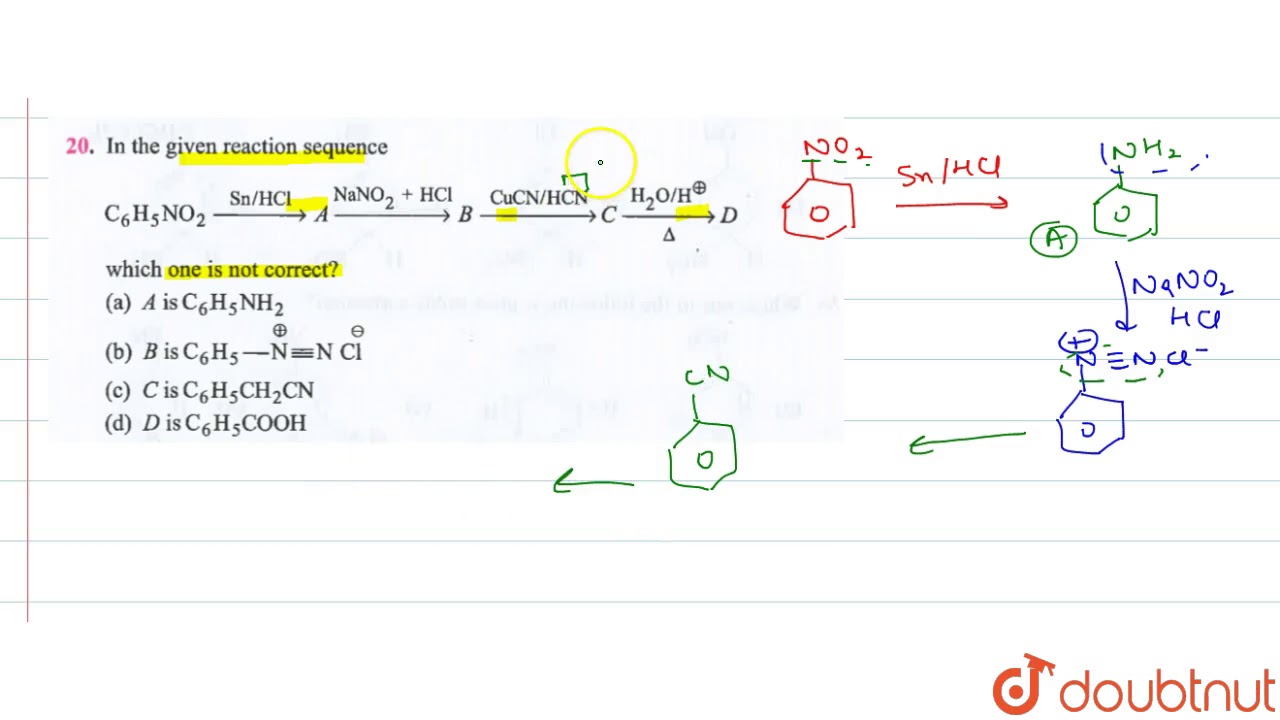 20. In the given reaction sequence
C₆H₅NO₂ —Sn/HCl→ A —NaNO₂ + HCl→ B —CuCN/HCN→ C —H₂O/H⊕, Δ→ D
which one is not correct?
(a) A is C₆H₅NH₂
(b) B is C₆H₅—N⊕≡N Cl⊖
(c) C is C₆H₅CH₂CN
(d) D is C₆H₅COOH
NO₂
Sn/HCl
NH₂
A
NaNO₂
HCl
(+)
N≡N Cl⁻
CN
doubtnut